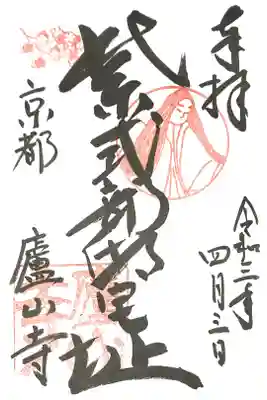 奉拝
令和二年
四月三日
紫式部邸宅址
京都
廬山寺